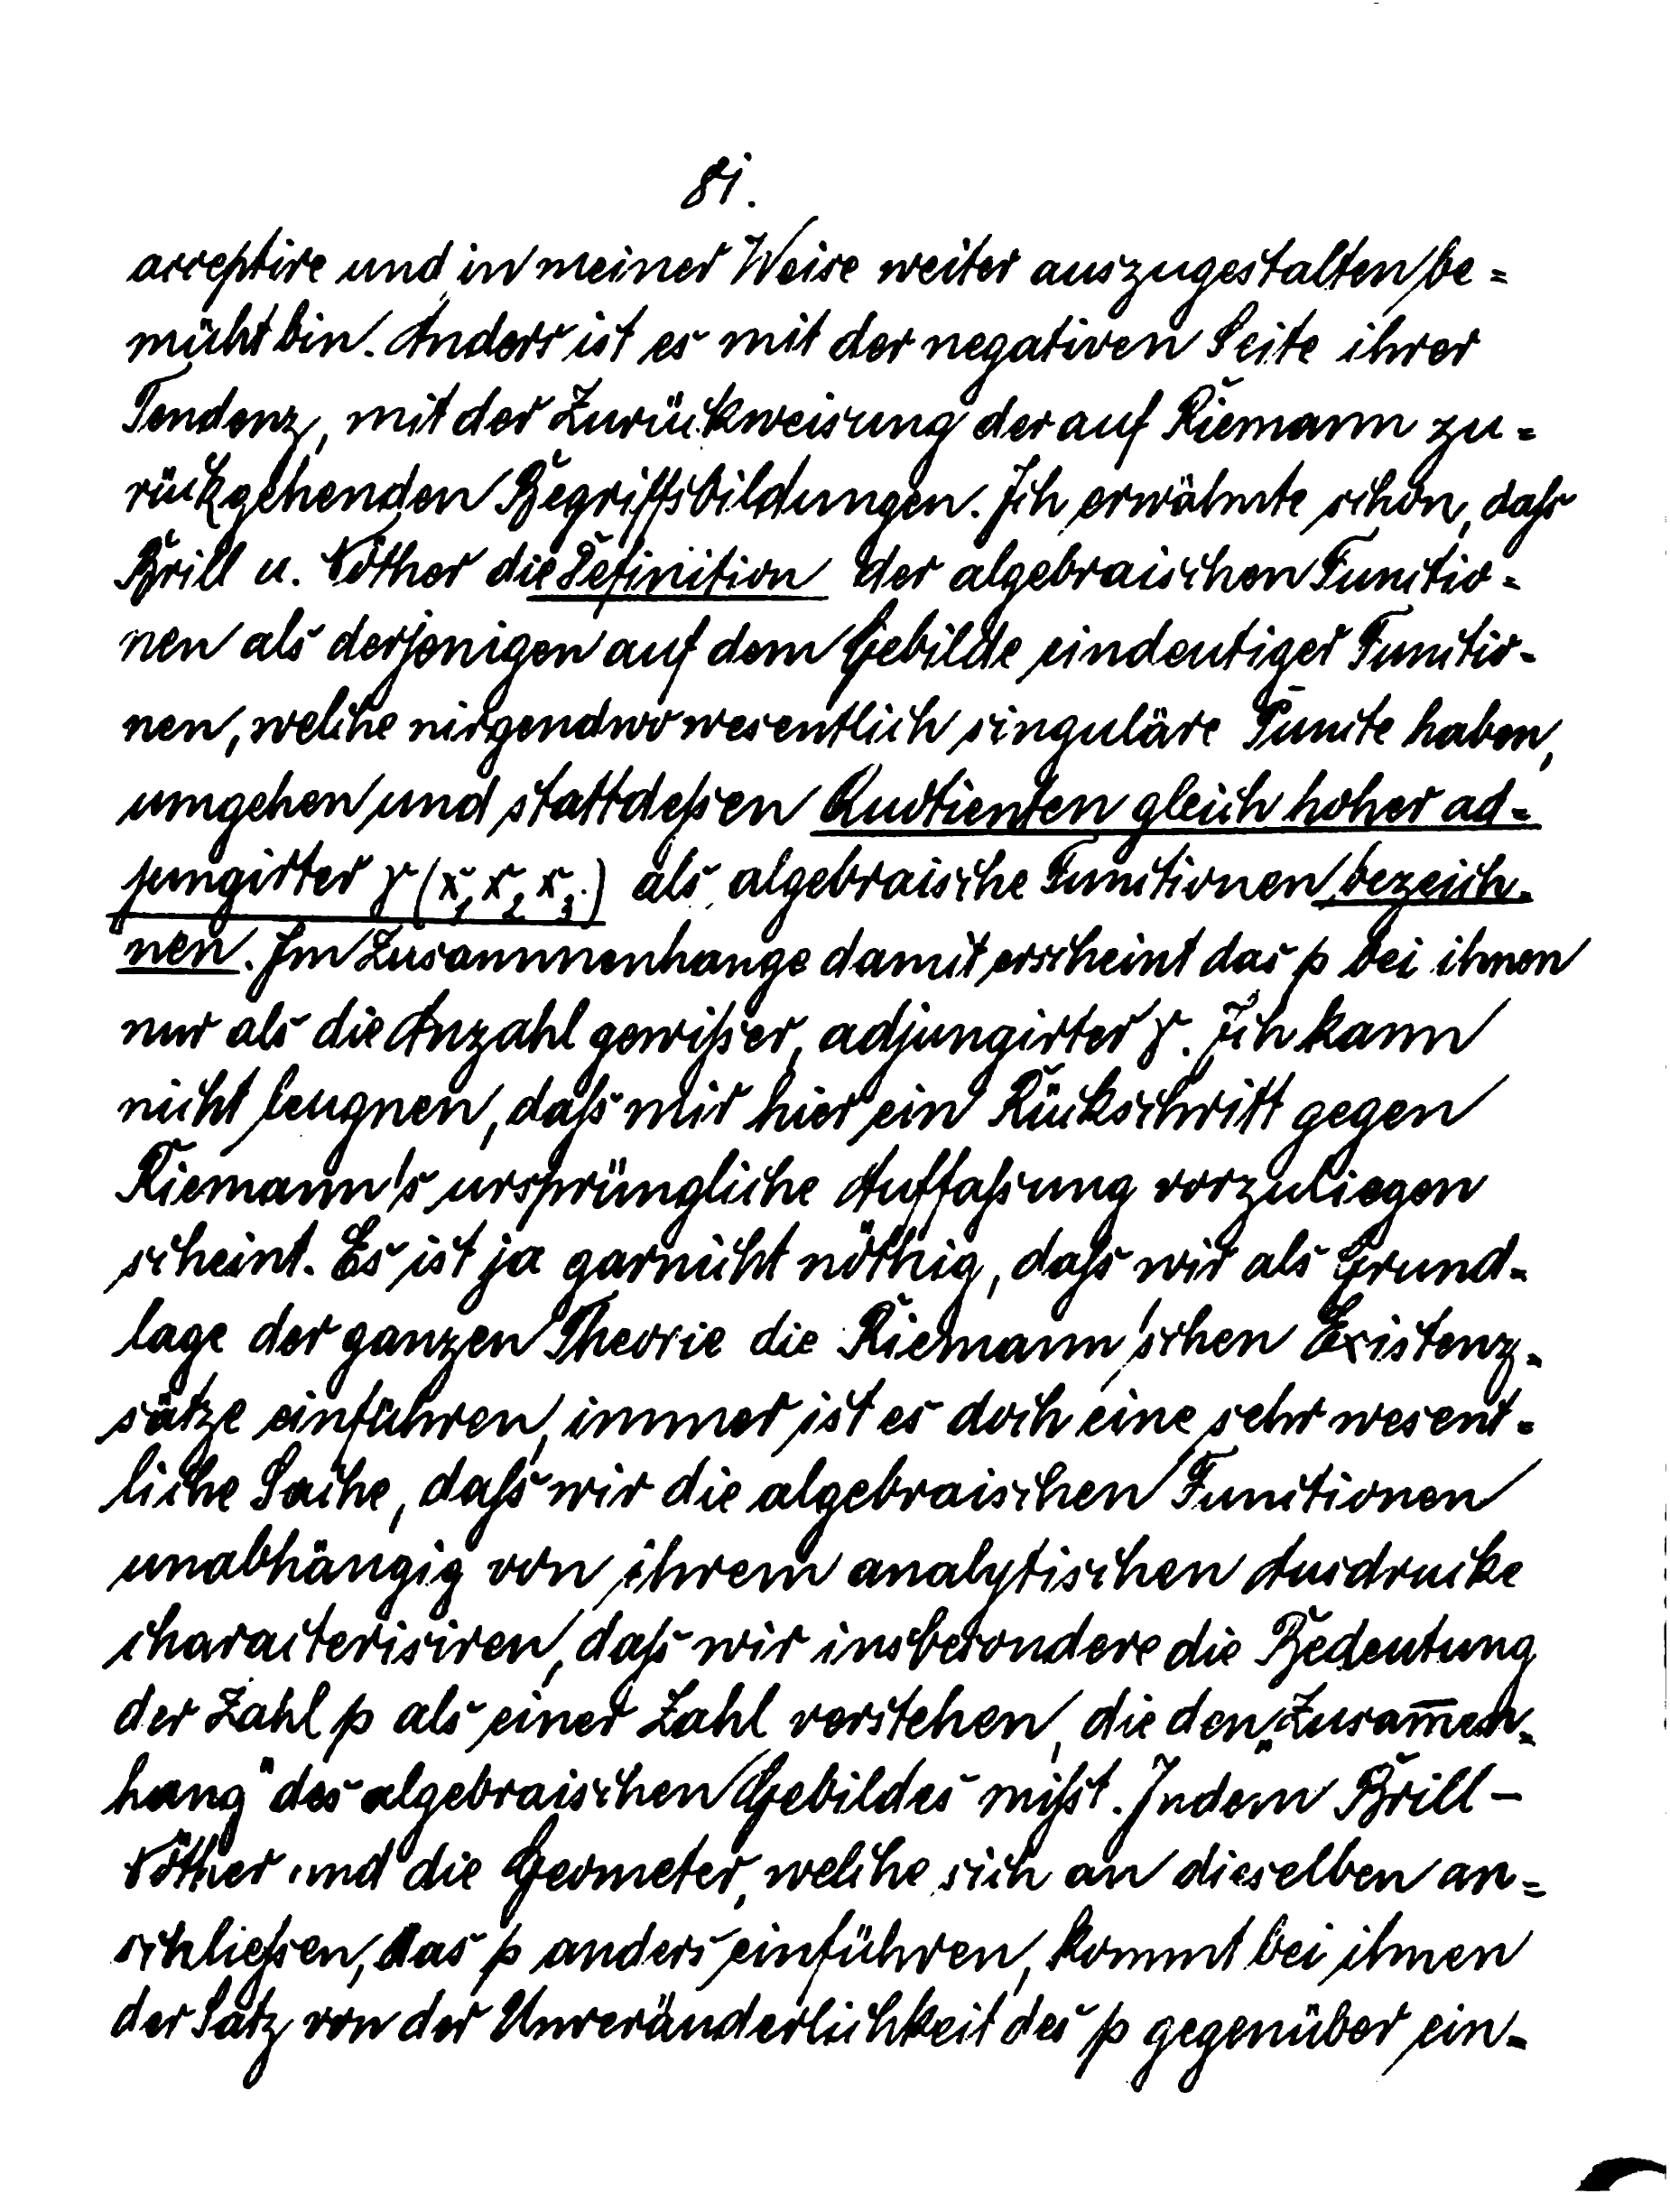 81.
acceptire und in meiner Weise weiter auszugestalten be=
müht bin. Anders ist es mit der negativen Seite ihrer
Tendenz, mit der Zurückweisung der auf Riemann zu=
rückgehenden Begriffsbildungen. Ich erwähnte schon, dass
Brill u. Nöther die Definition der algebraischen Functio-
nen als derjenigen auf dem Gebilde eindeutiger Functio-
nen, welche nirgendwo wesentlich singuläre Puncte haben,
umgehen und stattdessen Quotienten gleich hoher ad-
jungirter φ (x₁, x₂ x₃.) als algebraische Functionen bezeich-
nen. Im Zusammenhange damit erscheint das p bei ihnen
nur als die Anzahl gewisser adjungirter φ. Ich kann
nicht leugnen, dass mir hier ein Rückschritt gegen
Riemann's ursprüngliche Auffassung vorzuliegen
scheint. Es ist ja garnicht nöthig, dass wir als Grund-
lage der ganzen Theorie die Riemann'schen Existenz-
sätze einführen, immer ist es doch eine sehr wesent-
liche Sache, dass wir die algebraischen Functionen
unabhängig von ihrem analytischen Ausdrucke
characterisiren, dass wir insbesondere die Bedeutung
der Zahl p als einer Zahl verstehen, die den „Zusam̅en-
hang" des algebraischen Gebildes misst. Indem Brill-
Nöther und die Geometer, welche sich an dieselben an=
schliessen, das p anders einführen, kommt bei ihnen
der Satz von der Unveränderlichkeit des p gegenüber ein-